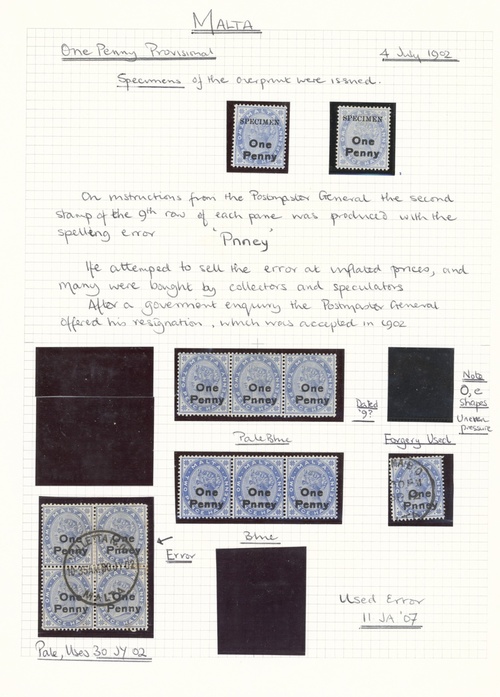 MALTA
One Penny Provisional 4 July 1902
Specimens of the overprint were issued.
SPECIMEN SPECIMEN
One One
Penny Penny
On instructions from the Postmaster General the second
stamp of the 9th row of each pane was produced with the
spelling error 'Pnney'
He attemped to sell the error at inflated prices, and
many were bought by collectors and speculators
After a goverment enquiry the Postmaster General
offered his resignation, which was accepted in 1902
One One One
Penny Penny Penny
Dated
'9?
Note
O, e
shapes
Uneven
pressure
Pale Blue
Forgery Used
One One One
Penny Penny Penny
One
Penny
Blue
One One
Penny Pnney
One One
Penny Penny
MALTA
Error
Used Error
11 JA '07
Pale, Used 30 JY 02